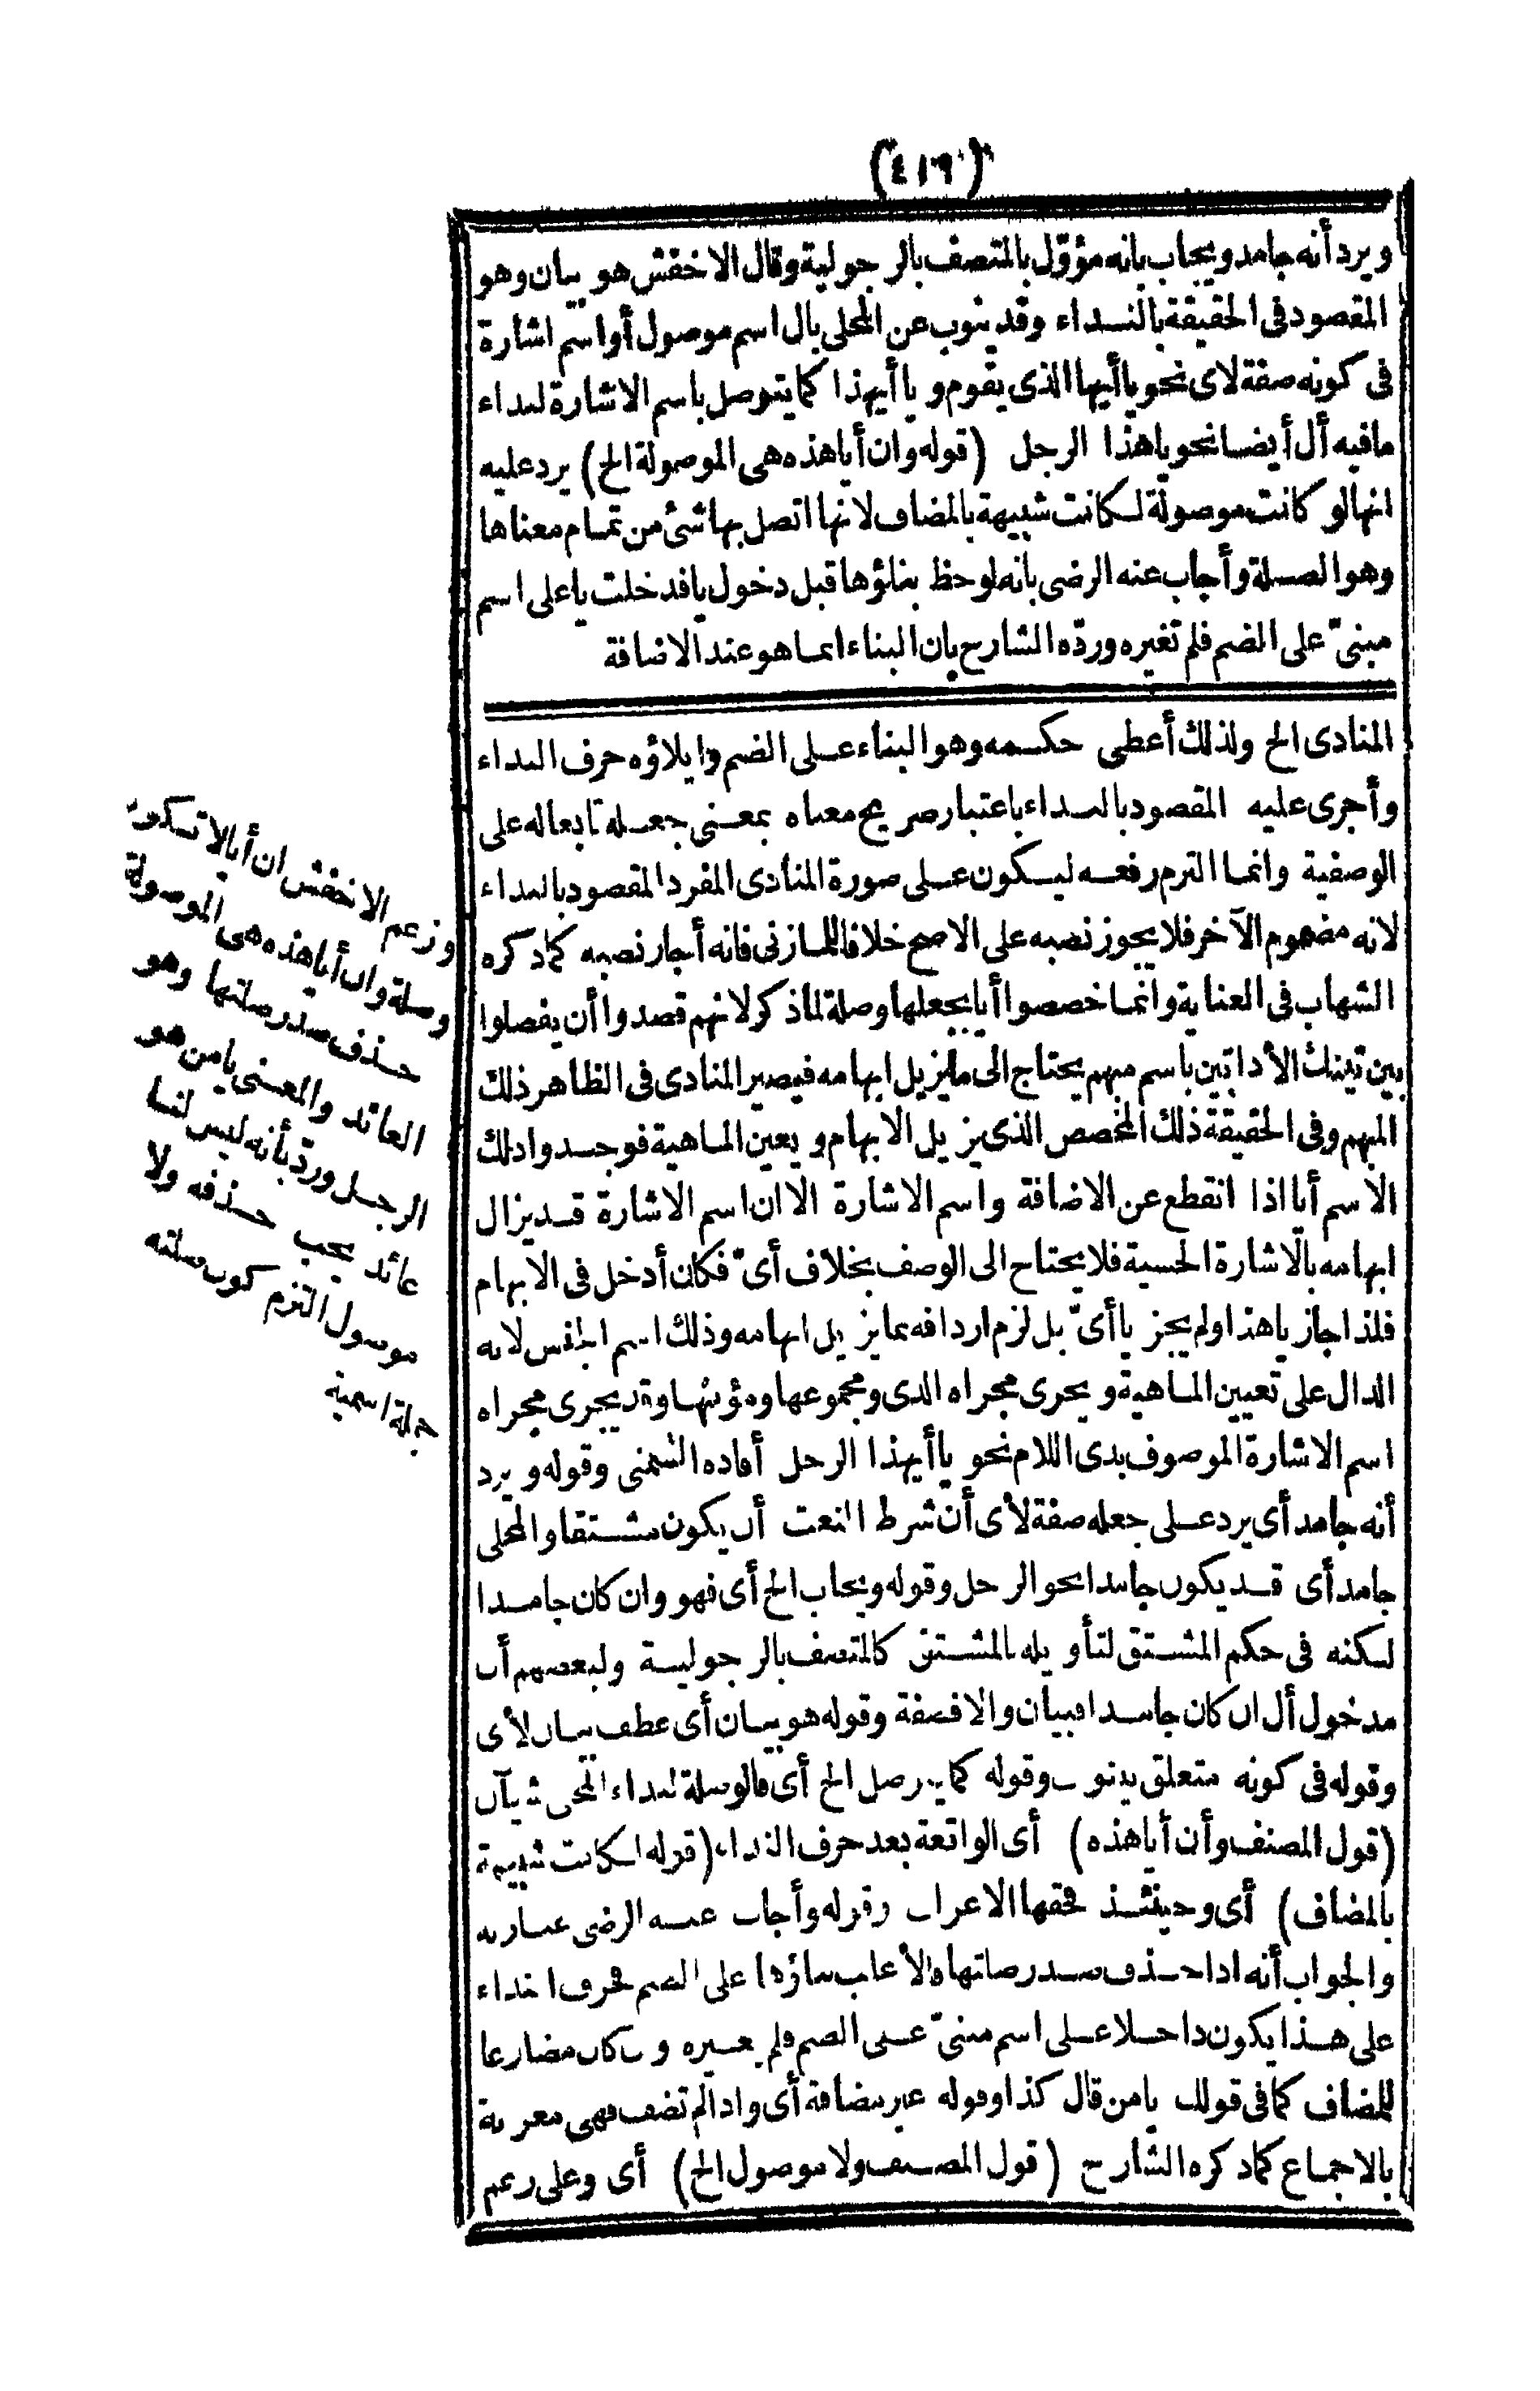 (٤١٩)
ويرد أنه جامد ويجاب بانه مؤوّل بالمتصف بالرجولية وقال الاخفش هو بيان وهو
المقصود فى الحقيقة بالنداء وقد ينوب عن المحلى بال اسم موصول أو اسم اشارة
فى كونه صفة لاى نحو يا أيها الذى يقوم ويا أيهذا كما يتوصل باسم الاشارة لنداء
ما فيه أل أيضا نحو يا هذا الرجل (قوله وان أيا هذه هى الموصولة الخ) يرد عليه
انها لو كانت موصولة لكانت شبيهة بالمضاف لانها اتصل بها شئ من تمام معناها
وهو الصلة وأجاب عنه الرضى بانه لوحظ بناؤها قبل دخول يا فدخلت يا على اسم
مبنىّ على الضم فلم تغيره وردّه الشارح بان البناء انما هو عند الاضافة
المنادى الخ ولذلك أعطى حكمه وهو البناء على الضم وايلاؤه حرف النداء
وأجرى عليه المقصود بالنداء باعتبار صريح معناه بمعنى جعله تابعا له على
الوصفية وانما التزم رفعه ليكون على صورة المنادى المفرد المقصود بالنداء
لانه مفهوم الآخر فلا يجوز نصبه على الاصح خلافا للمازنى فانه أجاز نصبه كما ذكره
الشهاب فى العناية وانما خصصوا أيا بجعلها وصلة لما ذكر لانهم قصدوا أن يفصلوا
بين تينك الأداتين باسم مبهم يحتاج الى ما يزيل ابهامه فيصير المنادى فى الظاهر ذلك
المبهم وفى الحقيقة ذلك المخصص الذى يزيل الابهام ويعين الماهية فوجدوا ذلك
الاسم أيا اذا انقطع عن الاضافة واسم الاشارة الا ان اسم الاشارة قد يزال
ابهامه بالاشارة الحسية فلا يحتاج الى الوصف بخلاف أىّ فكان أدخل فى الابهام
فلذا جاز يا هذا ولم يجز يا أىّ بل لزم اردافه بما يزيل ابهامه وذلك اسم الجنس لانه
الدال على تعيين الماهية ويجرى مجراه الذى ومجموعها ومؤنثها وقد يجرى مجراه
اسم الاشارة الموصوف بذى اللام نحو يا أيهذا الرجل أفاده الشمنى وقوله ويرد
أنه جامد أى يرد على جعله صفة لأى أن شرط النعت أن يكون مشتقا والمحلى
جامد أى قد يكون جامدا نحو الرجل وقوله ويجاب الخ أى فهو وان كان جامدا
لكنه فى حكم المشتق لتأويله بالمشتق كالمتصف بالرجولية ولبعضهم أن
مدخول أل ان كان جامدا فبيان والا فصفة وقوله هو بيان أى عطف بيان لأى
وقوله فى كونه متعلق بينوب وقوله كما يتوصل الخ أى فالوصلة لنداء المحلى شيآن
(قول المصنف وأن أيا هذه) أى الواقعة بعد حرف النداء (قوله لكانت شبيهة
بالمضاف) أى وحينئذ فحقها الاعراب وقوله وأجاب عنه الرضى عبارته
والجواب أنه اذا حذف صدر صلتها فالأغلب بناؤها على الضم فحرف النداء
على هذا يكون داخلا على اسم مبنىّ على الضم فلم يغيره وان كان مضارعا
للمضاف كما فى قولك يا من قال كذا وقوله غير مضافة أى واذا لم تضف فهى معربة
بالاجماع كما ذكره الشارح (قول المصنف ولا موصول الخ) أى وعلى زعم
وزعم الاخفش ان أيا لا تكون
وصلة وان أيا هذه هى الموصولة
حذف صدر صلتها وهو
العائد والمعنى يا من هو
الرجل وردّ بأنه ليس لنا
عائد يجب حذفه ولا
موصول التزم كون صلته
جملة اسمية